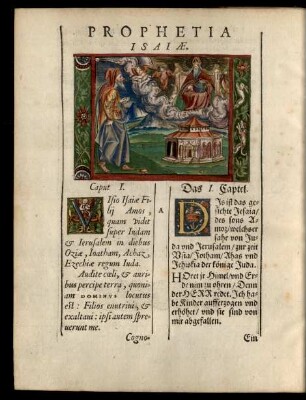 PROPHETIA
ISAIÆ.
Caput I.
VIsio Isaiæ Fi-
lij Amos,
quam vidit
super Iudam
& Ierusalem in diebus
Oziæ, Ioatham, Achaz,
Ezechiæ regum Iuda.
Audite cœli, & auri-
bus percipe terra, quoni-
am DOMINVS locutus
est: Filios enutrivi, &
exaltavi: ipsi autem spre-
uerunt me.
Cogno-
A
Das I. Capitel.
DIs ist das ge-
sichte Jesaia/
des sons A-
moz/welchs er
sahe von Ju-
da vnd Jerusalem/ zur zeit
Vsia/ Jotham/ Ahas vnd
Jehiskia der könige Juda.
HOret jr Himel/vnd Er-
de nim zu ohren/ Denn
der HERR redet. Ich ha-
be Kinder aufferzogen vnd
erhöhet/ vnd sie sind von
mir abgefallen.
Ein